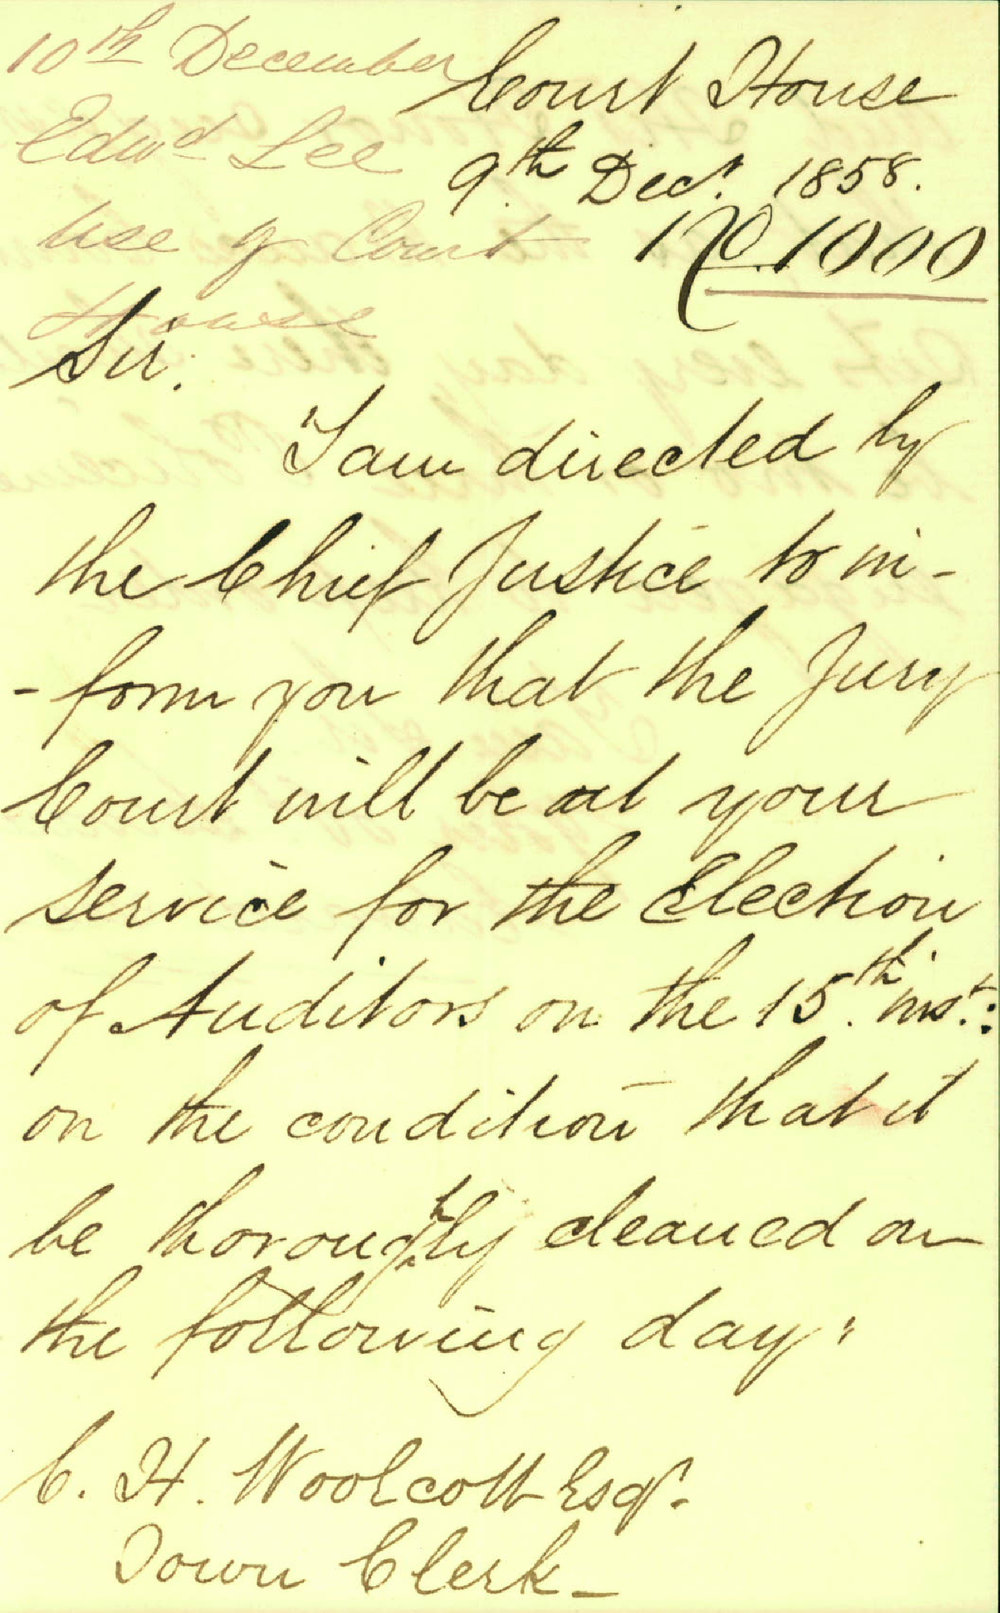 10th December
Edwd Lee
use of Court
House
Court House
9th Decr. 1858.
No. 1000
Sir.
I am directed by
the Chief Justice to in-
-form you that the Jury
Court will be at your
service for the Election
of Auditors on the 15th. inst.:
on the condition that it
be thoroughly cleaned on
the following day:
C. H. Woolcott Esqr.
Town Clerk_